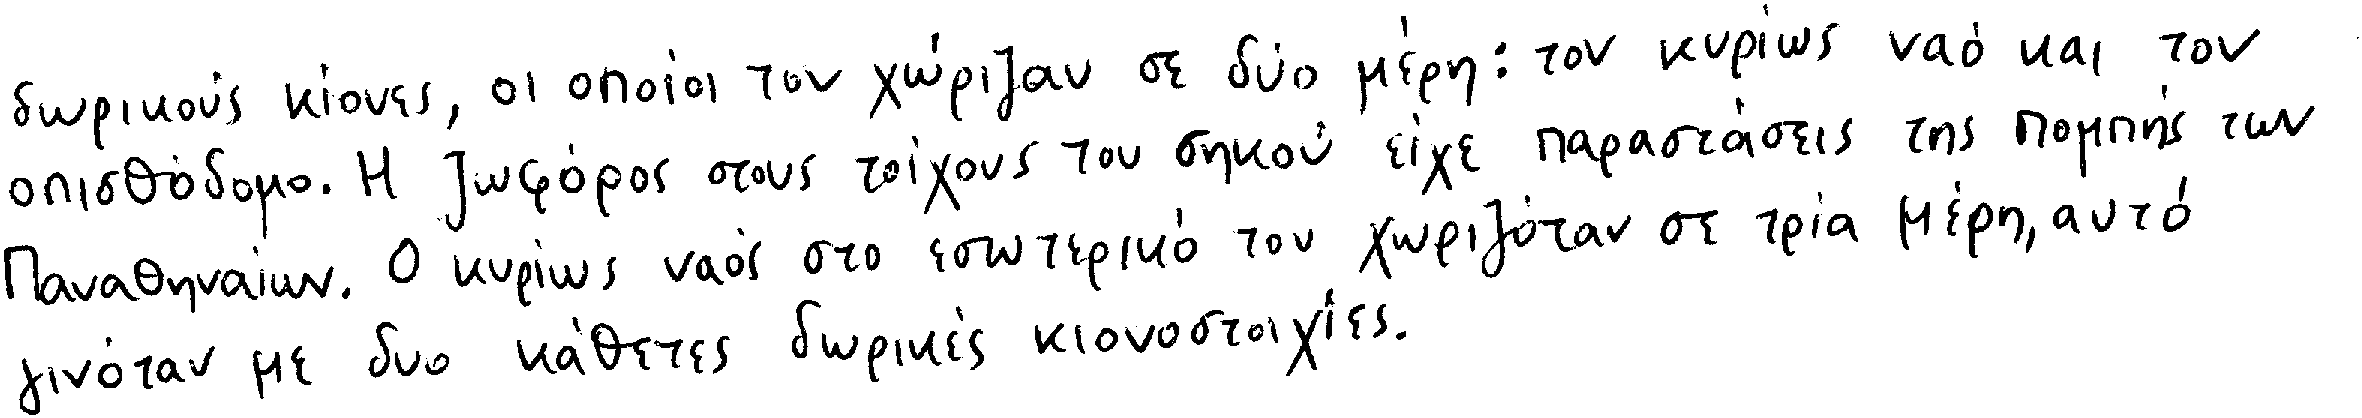 δωρικούς κίονες, οι οποίοι τον χώριζαν σε δύο μέρη: τον κυρίως ναό και τον
οπισθόδομο. Η ζωφόρος στους τοίχους του σηκού είχε παραστάσεις της πομπής των
Παναθηναίων. Ο κυρίως ναός στο εσωτερικό του χωριζόταν σε τρία μέρη, αυτό
γινόταν με δυο κάθετες δωρικές κιονοστοιχίες.